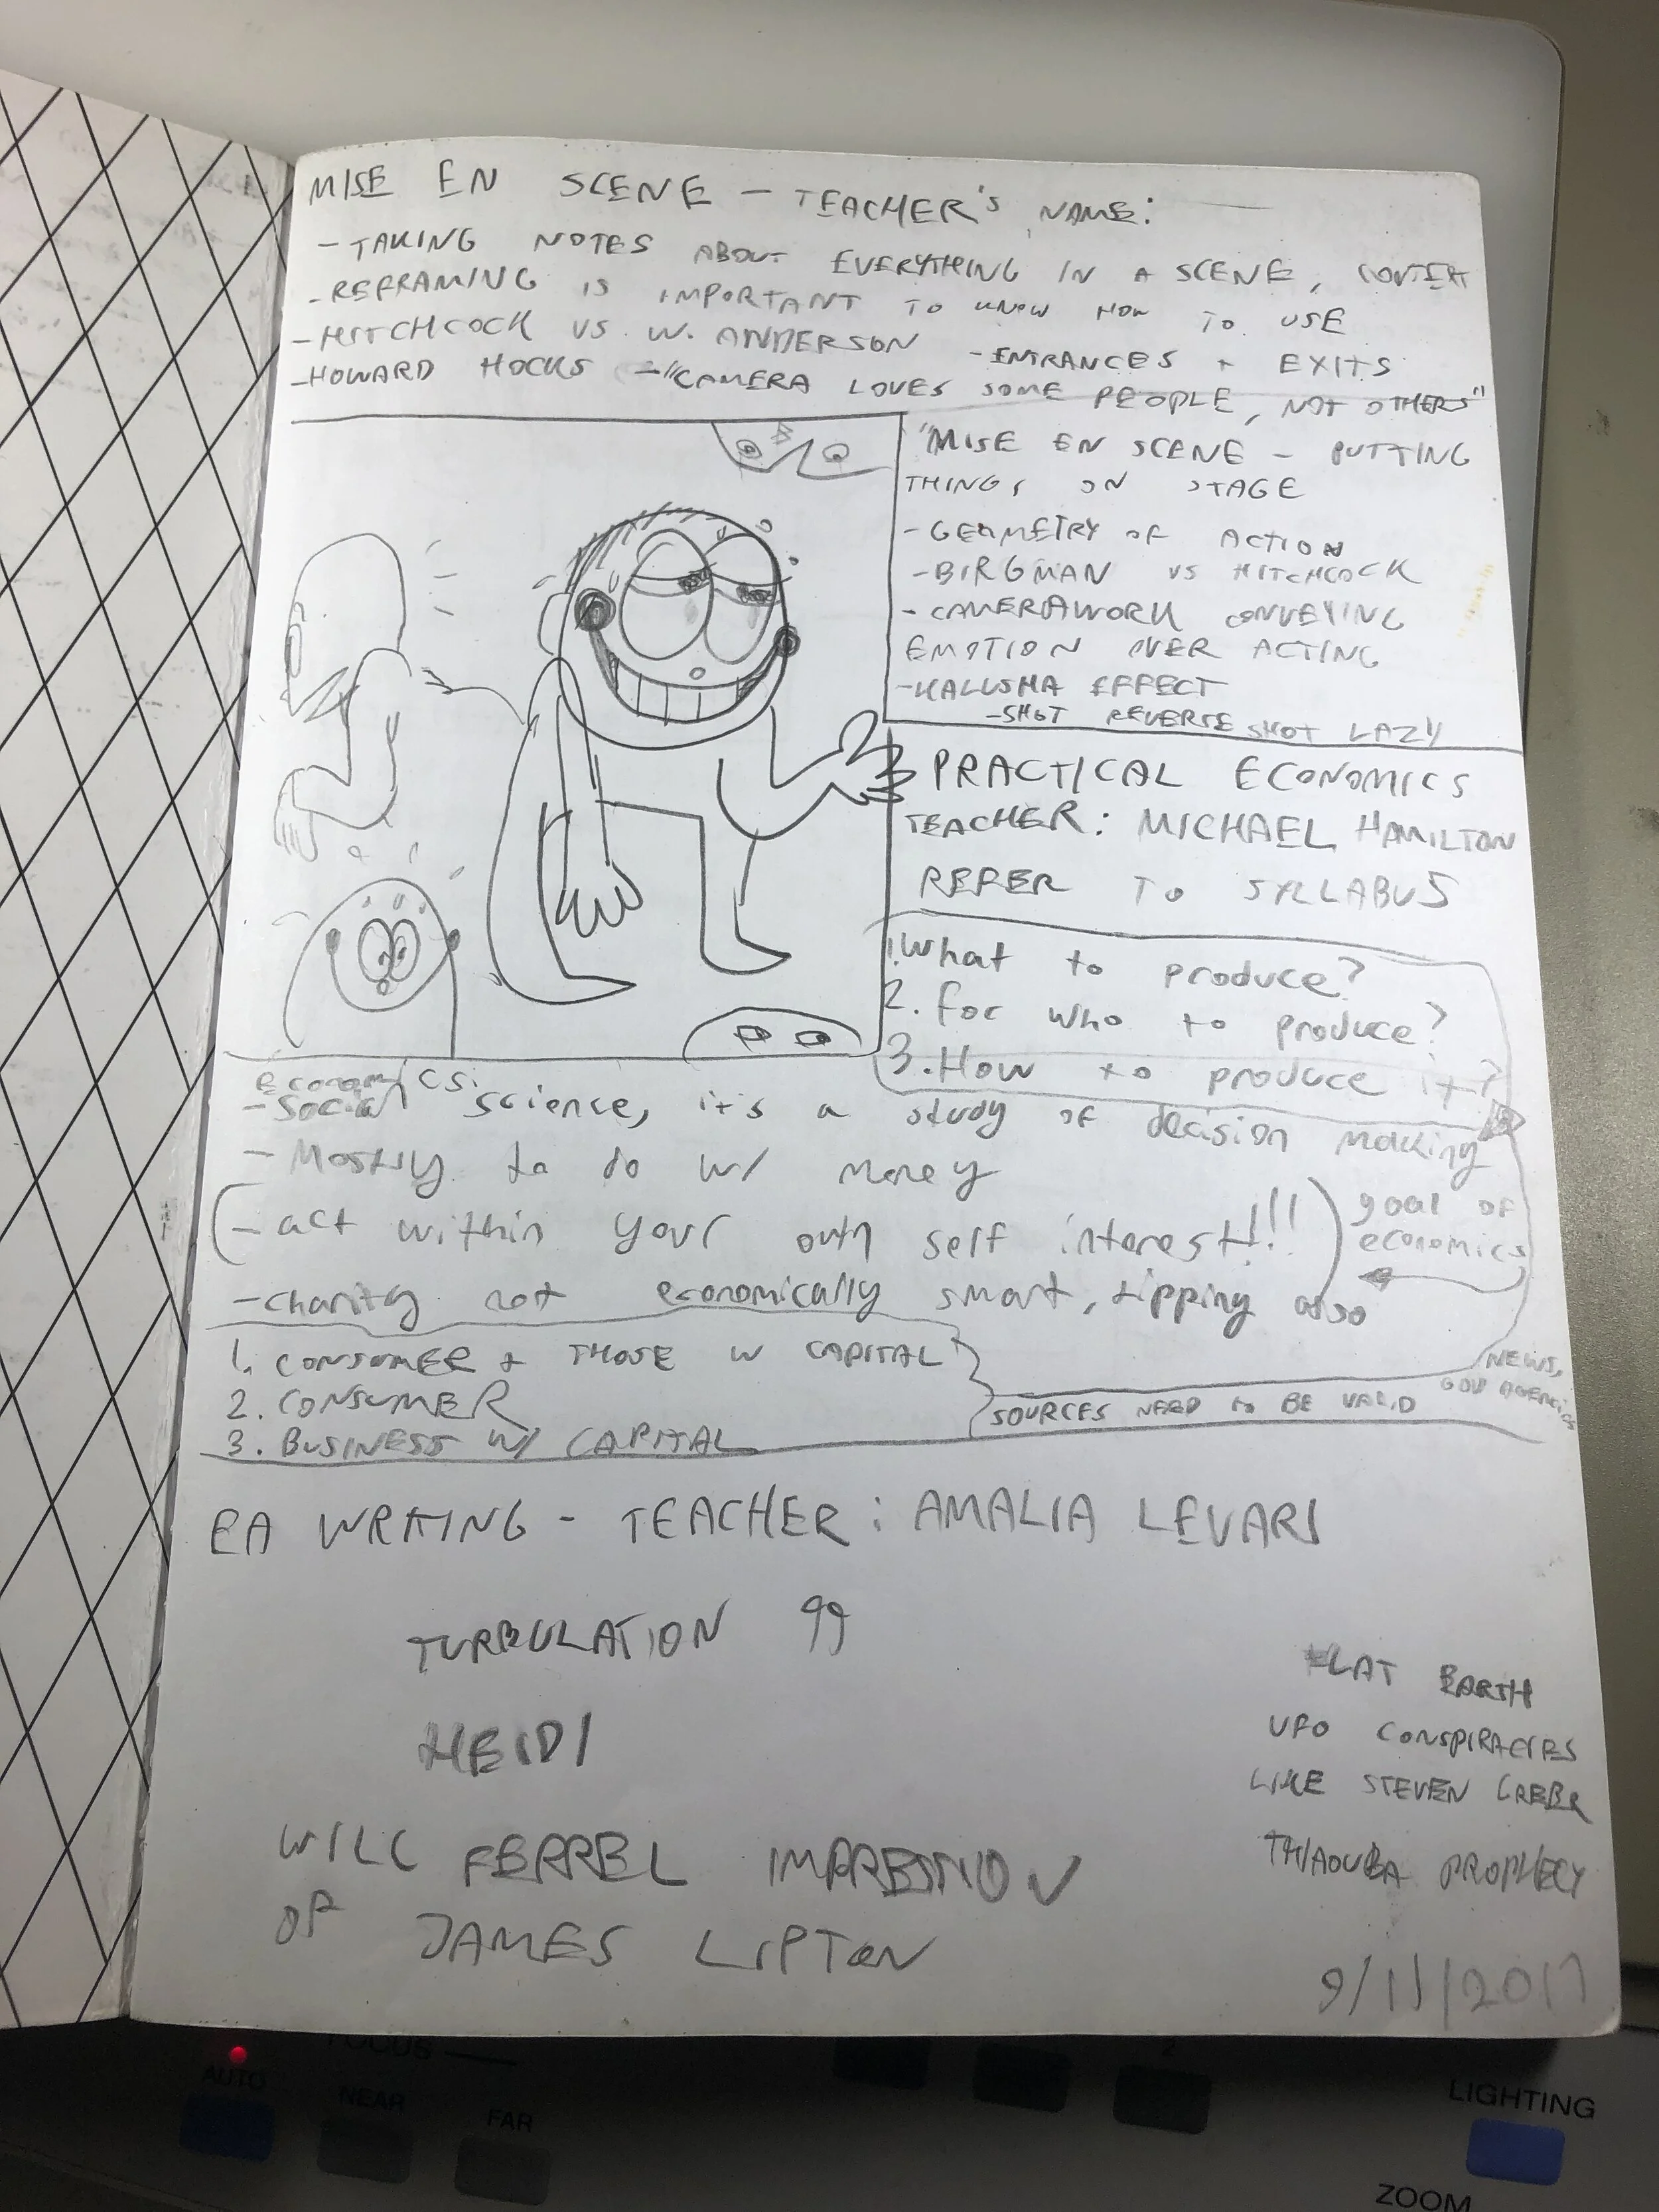 MISE EN SCENE - TEACHER'S NAME:
- TAKING NOTES ABOUT EVERYTHING IN A SCENE, CONTEXT
- REFRAMING IS IMPORTANT TO KNOW HOW TO USE
- HITCHCOCK VS. W. ANDERSON - ENTRANCES + EXITS
- HOWARD HOCKS - "CAMERA LOVES SOME PEOPLE, NOT OTHERS"
"MISE EN SCENE - PUTTING
THINGS ON STAGE
- GEOMETRY OF ACTION
- BIRGMAN VS HITCHCOCK
- CAMERAWORK CONVEYING
EMOTION OVER ACTING
- KALUSHA EFFECT
- SHOT REVERSE SHOT LAZY
PRACTICAL ECONOMICS
TEACHER: MICHAEL HAMILTON
REFER TO SYLLABUS
1. What to produce?
2. for who to produce?
3. How to produce it?
economics:
- Social science, it's a study of decision making
- Mostly to do w/ money
- act within your own self interest!!!
goal of
economics
- charity not economically smart, tipping also
1. CONSUMER + THOSE W CAPITAL
2. CONSUMER
3. BUSINESS W/ CAPITAL
SOURCES NEED to BE VALID
NEWS,
GOV AGENCIES
EA WRITING - TEACHER: AMALIA LEVARI
TURBULATION 99
HEIDI
WILL FERREL IMPRESSION
OF JAMES LIPTON
FLAT EARTH
UFO CONSPIRACIES
LIKE STEVEN GREER
THIAOUBA PROPHECY
9/11/2017
FOCUS
AUTO
NEAR
FAR
2
LIGHTING
ZOOM